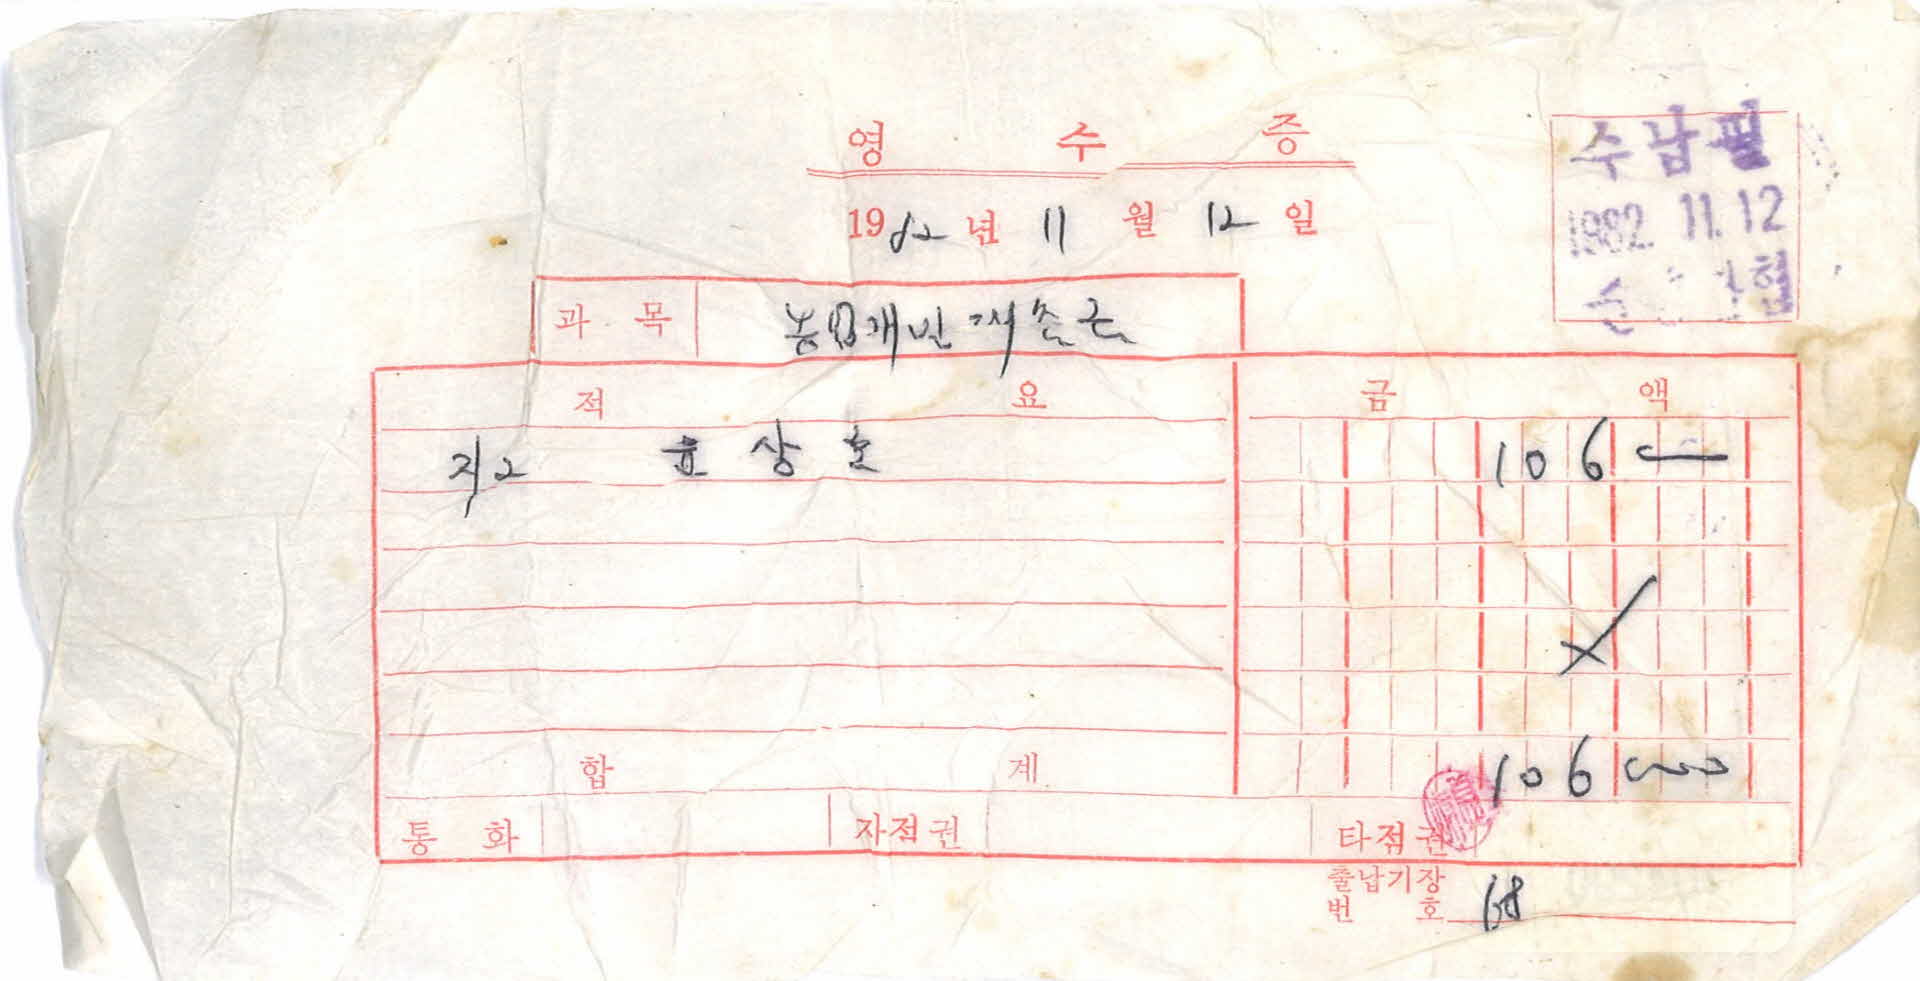 영 수 증
1982년 11월 12일
수납필
1982. 11. 12
과 목
적 요 금 액
지2 윤상호 106
합 계 106
통 화 자점권 타점권
출납기장
번 호 68